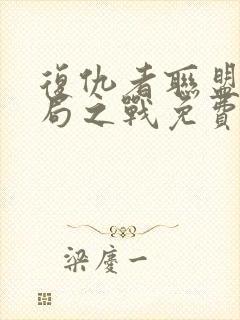 復仇者聯盟
局之戰免費
梁慶一